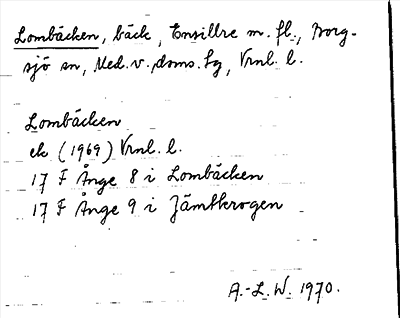 Lombäcken, bäck, Ensillre m. fl., Borg-
sjö sn, Med. v. doms. tg, Vrnl. l.
Lombäcken
ek (1969) Vrnl. l.
17 F Ånge 8 i Lombäcken
17 F Ånge 9 i Jämtkrogen
A.-L. W. 1970.